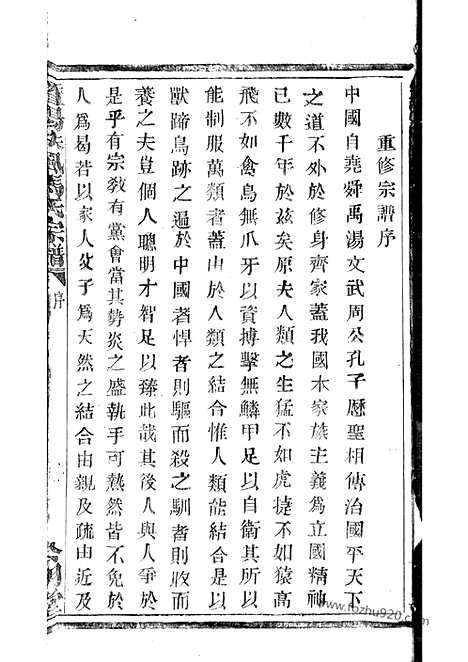 重修宗譜序
中國自堯舜禹湯文武周公孔子歷聖相傳治國平天下
之道不外於修身齊家蓋我國本家族主義爲立國精神
已數千年於茲矣原夫人類之生猛不如虎捷不如猿高
飛不如禽鳥無爪牙以資搏擊無鱗甲足以自衛其所以
能制服萬類者蓋由於人類之結合惟人類能結合是以
獸蹄鳥跡之過於中國者悍者則驅而殺之馴者則收而
養之夫豈個人聰明才智足以臻此哉其後人與人爭於
是乎有宗敎有黨會當其勢炎之盛執手可熱然皆不免於
人爲曷若以家人父子爲天然之結合由親及疏由近及
氏宗譜
序
www.fozhu920.com